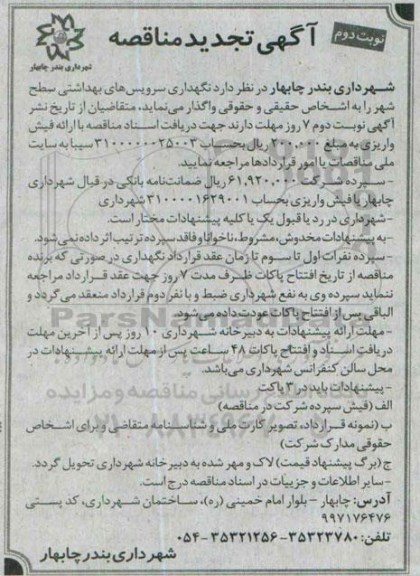 آگهی تجدید مناقصه
نوبت دوم
شهرداری بندر چابهار
شهرداری بندر چابهار در نظر دارد نگهداری سرویس‌های بهداشتی سطح
شهر را به اشخاص حقیقی و حقوقی واگذار می‌نماید، متقاضیان از تاریخ نشر
آگهی نوبت دوم ۷ روز مهلت دارند جهت دریافت اسناد مناقصه با ارائه فیش
واریزی به مبلغ ریال بحساب ۳۱۰۰۰۰۰۰۲۵۰۰۳ سیبا به سایت
ملی مناقصات یا امور قراردادها مراجعه نمایید.
- سپرده شرکت ۶۱,۹۲۰,۰۰۰ ریال ضمانت‌نامه بانکی در قبال شهرداری
چابهار یا فیش واریزی بحساب ۳۱۰۰۰۰۱۶۲۹۰۰۱ شهرداری
- شهرداری در رد یا قبول یک یا کلیه پیشنهادات مختار است.
- به پیشنهادات مخدوش، مشروط، ناخوانا و فاقد سپرده ترتیب اثر داده نمی‌شود.
- سپرده نفرات اول تا سوم تا زمان عقد قرارداد نگهداری در صورتی که برنده
مناقصه از تاریخ افتتاح پاکات ظرف مدت ۷ روز جهت عقد قرارداد مراجعه
ننماید سپرده وی به نفع شهرداری ضبط و با نفر دوم قرارداد منعقد می‌گردد و
الباقی پس از افتتاح پاکات عودت داده می‌شود.
- مهلت ارائه پیشنهادات به دبیرخانه شهرداری ۱۰ روز پس از آخرین مهلت
دریافت اسناد و افتتاح پاکات ۴۸ ساعت پس از مهلت ارائه پیشنهادات در
محل سالن کنفرانس شهرداری می‌باشد.
- پیشنهادات باید در ۳ پاکت
الف (فیش سپرده شرکت در مناقصه)
ب (نمونه قرارداد، تصویر کارت ملی و شناسنامه متقاضی و برای اشخاص
حقوقی مدارک شرکت)
ج (برگ پیشنهاد قیمت) لاک و مهر شده به دبیرخانه شهرداری تحویل گردد.
- سایر اطلاعات و جزییات در اسناد مناقصه درج است.
آدرس: چابهار - بلوار امام خمینی (ره)، ساختمان شهرداری، کد پستی
۹۹۷۱۷۶۴۷۶
تلفن: ۳۵۳۲۳۷۸۰-۳۵۳۲۱۲۵۶-۰۵۴
شهرداری بندر چابهار